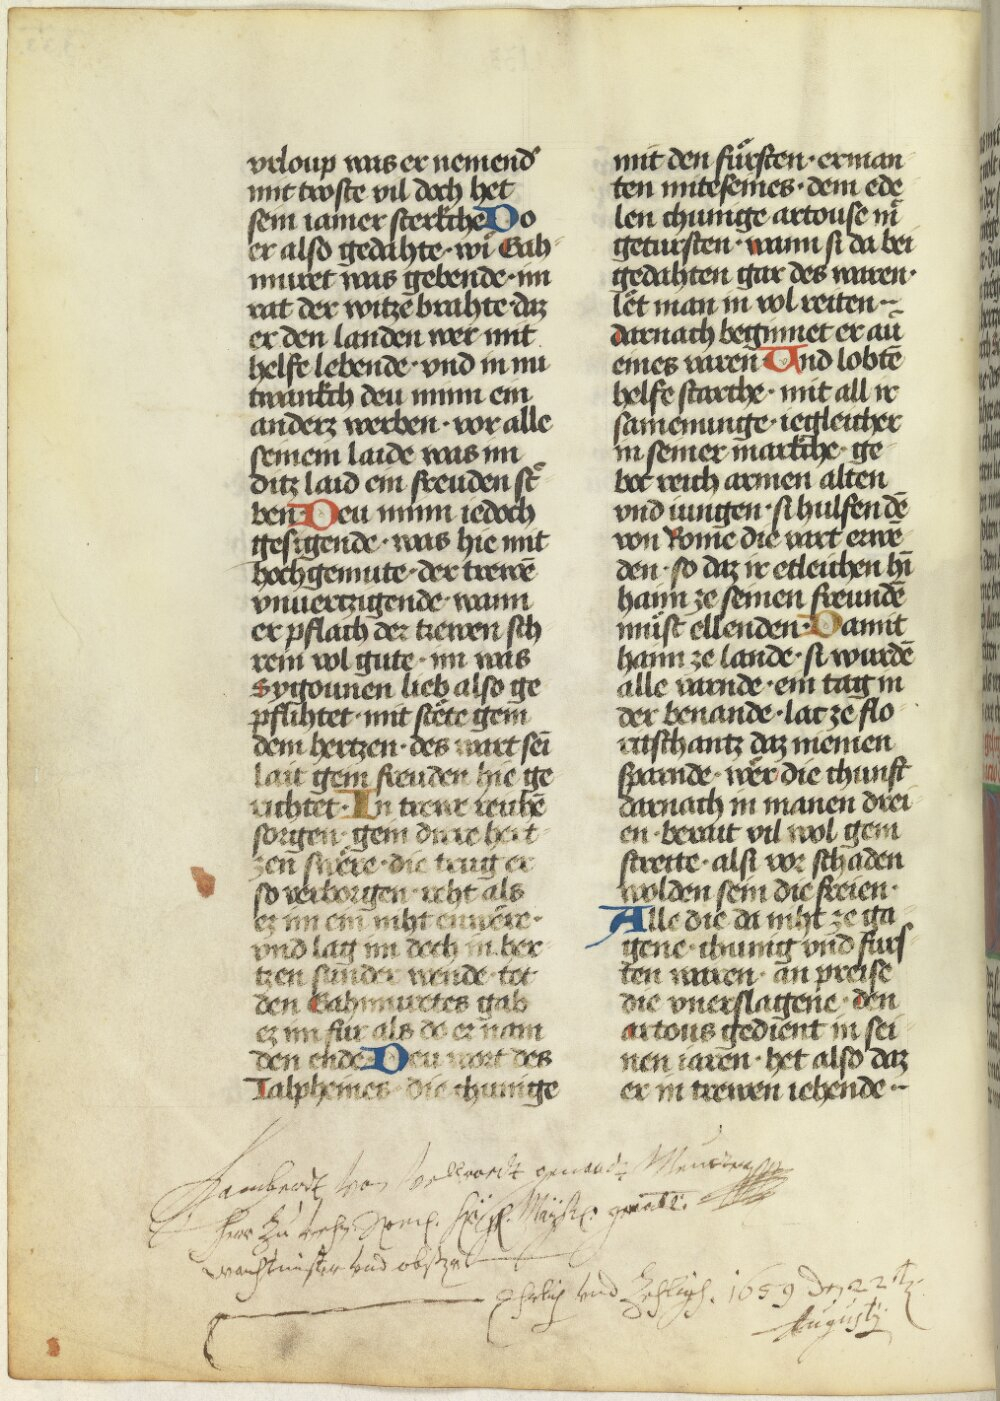 vrloup was er nemend
mit troste vil doch het
sein iamer sterkche Do
er also gedahte · wi Gah
muret was gebende · im
rat der witze brahte · daz
er den landen wer mit
helfe lebende · vnd in nu
twankch deu minn ein
anderz werben · vor alle
seinem laide was im
ditz laid ein freuden st
ben · Deu minn iedoch
gesigende · was hie mit
hochgemute · der trewē
vnuertzigende · wann
er pflach der trewen sch
rein vol gute · im was
Sygounen lieb also ge
pflihtet · mit stete gein
dem hertzen · des wart sei
lait gein freuden hie ge
richtet · In trewe reubē
sorgen · gein dirre hert
zen swere · die trug er
so verborgen · reht als
ez im ein niht enwere ·
vnd lag im doch in her
tzen sunder wende · tot
den Gahmuretes gab
ez im für als do er nam
den ende Deu wort des
Talpheines · die chunige
mit den fürsten · erman
ten miteseines · dem ede
len chunige artouse m
getursten · wann si da bei
gedahten gar des waren ·
let man in vol reiten
darnach beginnet er au
eines varen Und lobte
helfe starche · mit all ir
samenunge · iegleicher
in seiner markche · ge
bot reich armen alten
vnd iungen · si hulfen dē
von Rome die vart erwē
den · so daz ir etleichen hī
haim ze seinen freundē
müst ellenden · Damit
haim ze lande · si wurdē
alle varnde · ein tag in
der benande · lat ze flo
ritschantz daz niemen
sparnde · wer die chunft
darnach in manen drei
en · berait vil wol gein
streite · als si vor schaden
wolden sein die freien ·
Alle die da niht ze ga
gene · chunig vnd fürs
ten waren · an preise
die vnerslagene · den
artous gedient in sei
nen iaren · het also daz
er in trewen iehende
Lamberdt von
Herr zu
wachtmister vnd obster
Ehrlich vnd 1659 Den 22t
Augusty